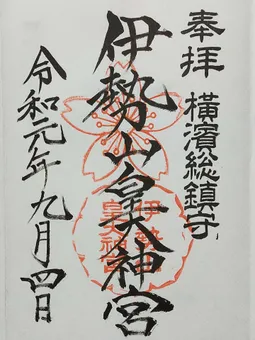 奉拝 横濱総鎮守
伊勢山皇大神宮
伊勢山
皇大神宮
令和元年九月四日